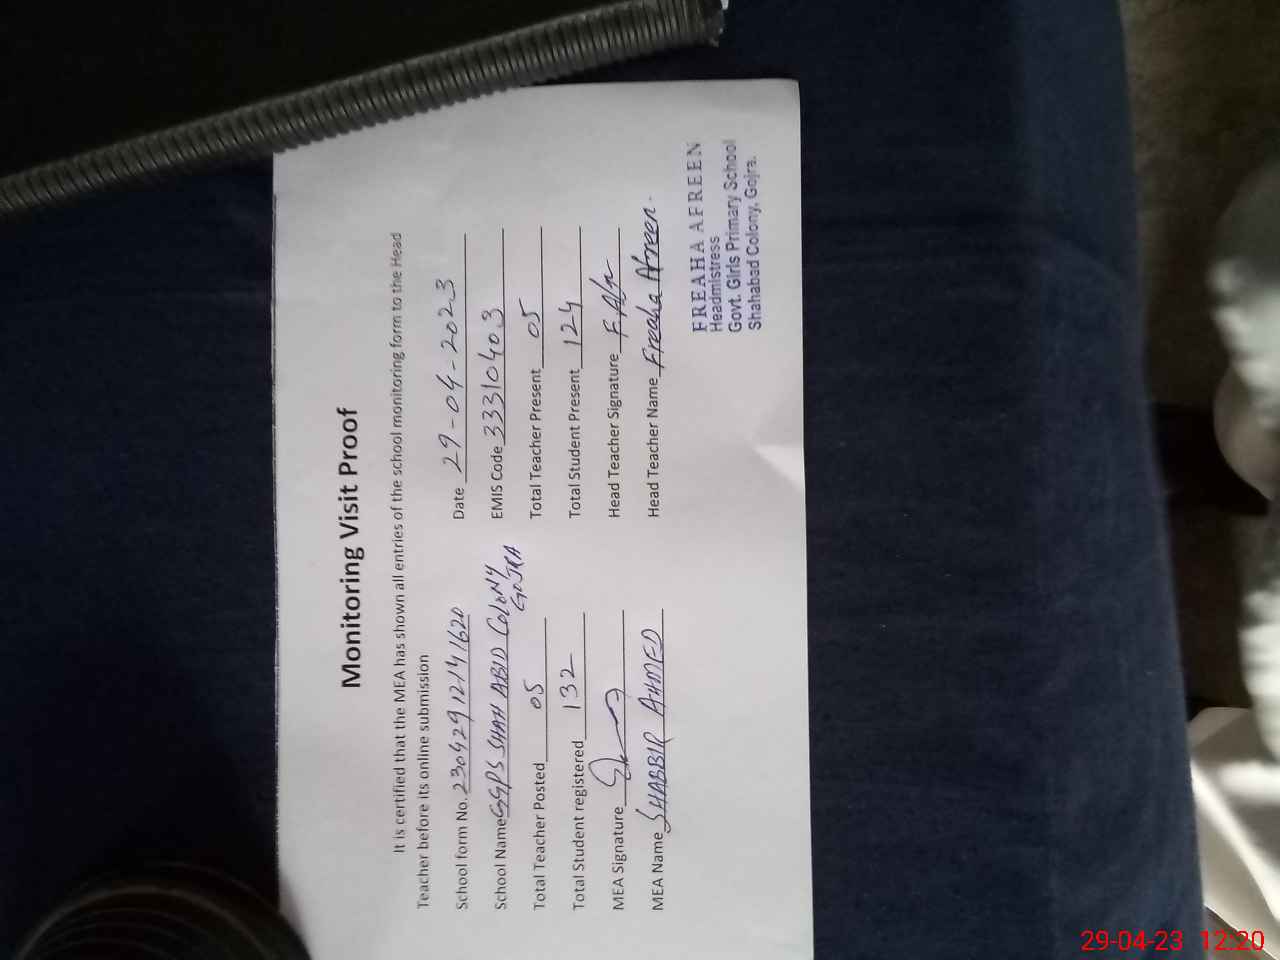 Monitoring Visit Proof
It is certified that the MEA has shown all entries of the school monitoring form to the Head
Teacher before its online submission
School form No. 23042912141620 Date 29-04-2023
School Name GGPS SHAH ABID COLONY GOJRA EMIS Code 33310403
Total Teacher Posted 05 Total Teacher Present 05
Total Student registered 132 Total Student Present 124
MEA Signature Head Teacher Signature
MEA Name SHABBIR AHMED Head Teacher Name Freaha Afreen.
FREAHA AFREEN
Headmistress
Govt. Girls Primary School
Shahabad Colony, Gojra.
29-04-23 12:20